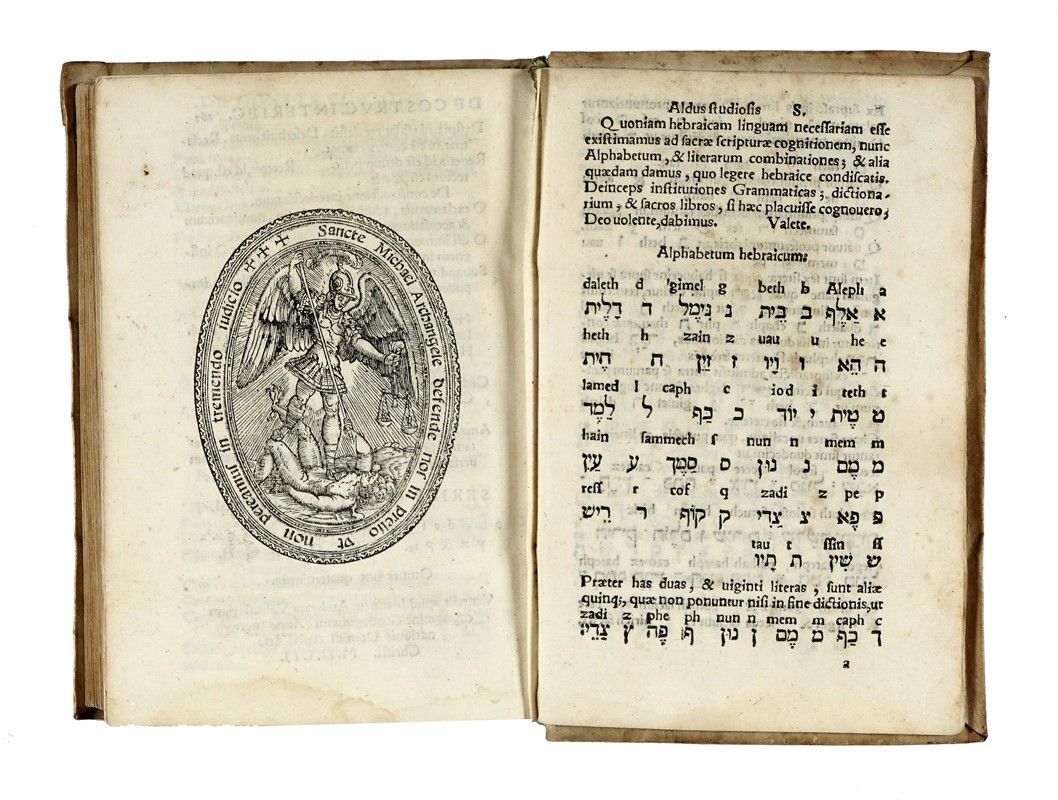 Sancte Michael Archangele defende nos in prelio vt non pereamur in tremendo iudicio
Aldus studiosis S.
Quoniam hebraicam linguam necessariam esse
existimamus ad sacræ scripturæ cognitionem, nunc
Alphabetum, & literarum combinationes; & alia
quædam damus, quo legere hebraice condiscatis.
Deinceps institutiones Grammaticas; dictiona-
rium; & sacros libros, si hæc placuisse cognouero;
Deo uolente, dabimus. Valete.
Alphabetum hebraicum.
daleth d gimel g beth b Aleph a
א אָלֶף ב בֵּית ג גִּימֶל ד דָלֶית
heth h zain z uau u he e
ה הֵא ו וָיו ז זַיִן ח חֵית
lamed l caph c iod i teth t
ט טֵית י יוֹד כ כַּף ל לָמֶד
hain sammech s nun n mem m
מ מֵם נ נוּן ס סַמֶך ע עַיִן
ress r cof q zadi z pe p
פ פֵא צ צַדִי ק קוֹף ר רֵיש
tau t ssin ss
ש שִין ת תָיו
Præter has duas, & uiginti literas; sunt aliæ
quinq;, quæ non ponuntur nisi in fine dictionis, ut
zadi z phe ph nun n mem m caph c
ך כַף ם מֵם ן נוּן ף פֵה ץ צַדִי
a